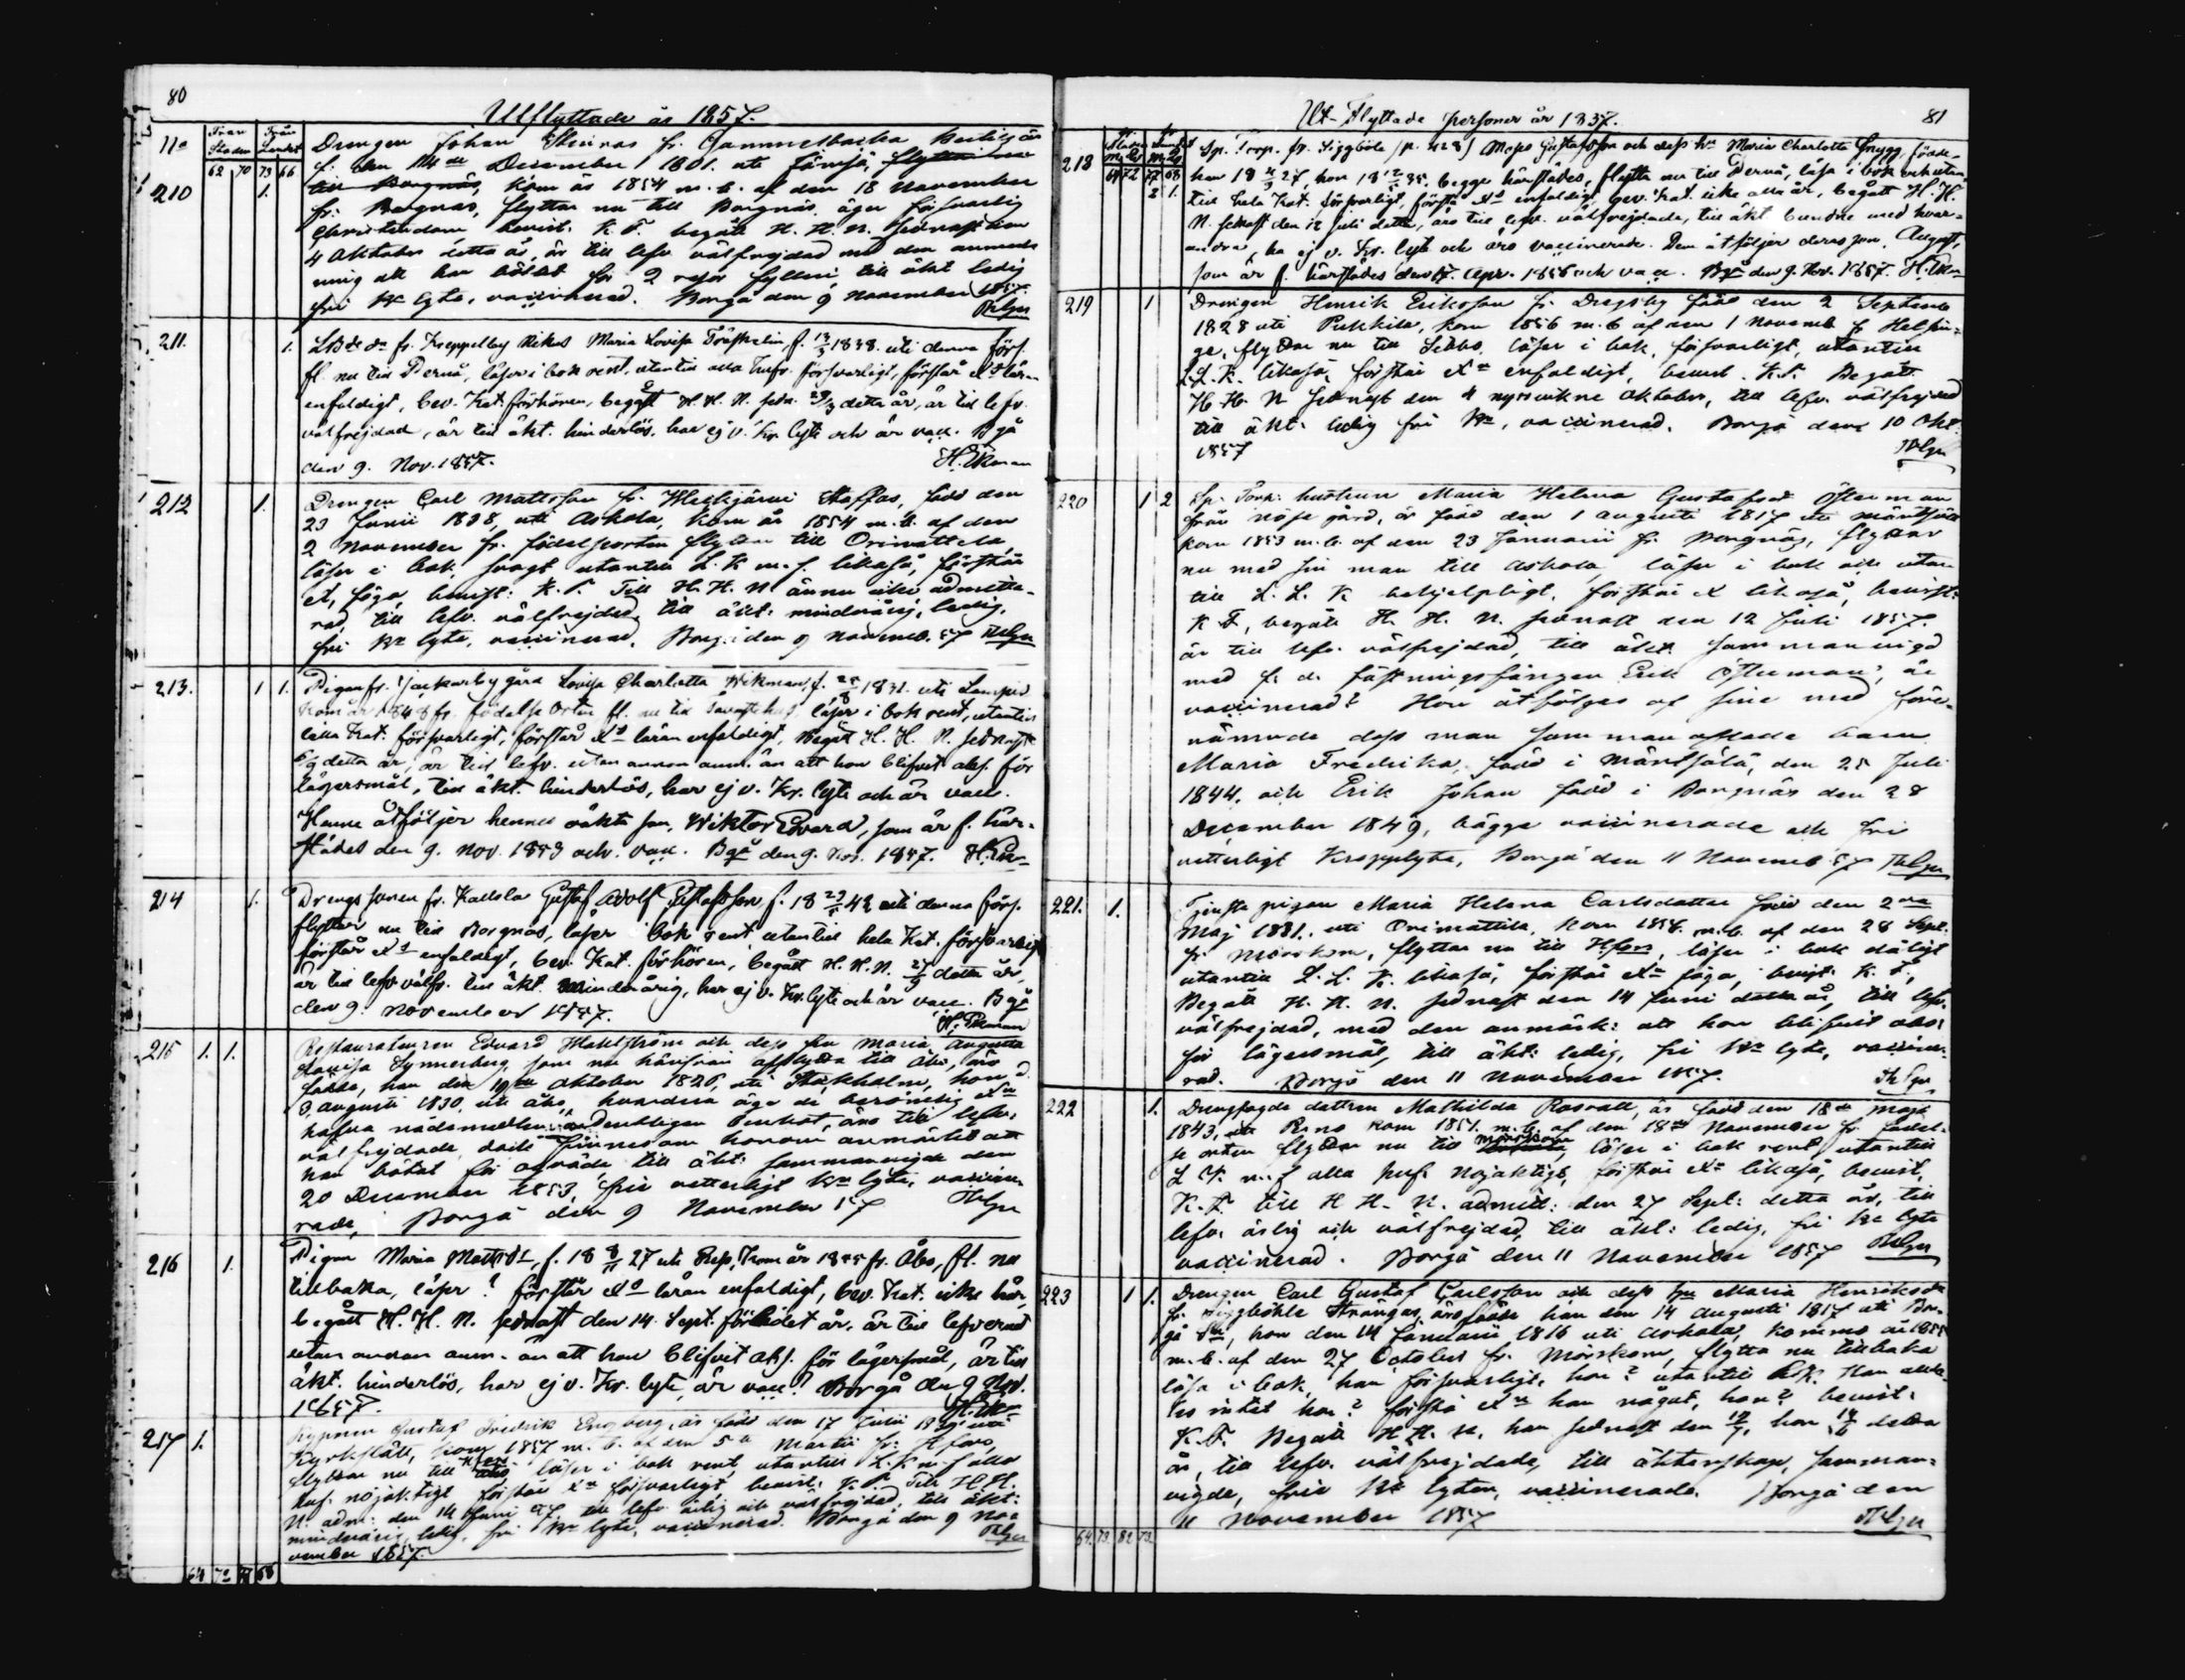 80
Utflyttade år 1857.
No
Från Staden
Från Landet
62 70 73 66
210
1.
Drengen Johan Henric fr. Gammelbacka
f. den 14de December 1801. uti
till Borgnäs, kom år 1854 m. b. af den 18 November
fr. Borgnäs, flyttar nu till Borgnäs äger försvarlig
Christendom bevist. K. F. begått H. H. N. sednast den
4 Oktober detta år, är till lefv. välfrejdad med den anmärk-
ning att han bötat för 2 resor fylleri, till äkt ledig
fri Kr. lyte, vaccinerad. Borgå den 9 November 1857.
211.
1.
fr. Kreppelby Maria Lovisa f. 13/3 1838. uti denna förs.
fl. nu till Pernå, läser i bok rent, utantill försvarligt, förstår Xd läran
enfaldigt, bev. Kat. förhören, begått H. H. N. sedn. detta år, är till lefv.
välfrejdad, är till äkt. hinderlös, har ej v. Kr. lyte och är vacc. Bgå
den 9. Nov. 1857. H. Ekman
212
1.
Drengen Carl Mattsson fr. Staffas, född den
23 Junii 1838, uti Askola, kom år 1854 m. b. af den
2 November fr. födelseorten flyttar till Orimattila,
läser i bok svagt utantill L. K m. f. likaså, förstår
X, föga bevist: K. F. Till H. H. N ännu icke admitte-
rad, till lefv. välfrejdad, till äkt: minderårig, ledig,
fri Kr. lyte, vaccinerad. Borgå den 9 Novemb. 57
213.
1 1.
Pigan fr. gård Lovisa Charlotta Wikman, f. 1831. uti
kom år 1848 fr. födelse Orten fl. nu till läser i bok rent, utantill
Kat. försvarligt, förstår Xd läran enfaldigt, Begått H. H. N. sednast
detta år, är till lefv. utan annan anm. än att hon blifvit abs. för
lägersmål, till äkt. hinderlös, har ej v. Kr. lyte och är vacc.
Henne åtföljer hennes oäkta son, Wiktor Edvard, som är f. här-
städes den 9. Nov. 1853 och vacc. Bgå den 9. Nov. 1857.
214
1.
Drengs sonen fr. Kallola Gustaf Adolf Gustafsson, f. 18 42 uti denna förs.
flyttar nu till Borgnäs, läser i bok rent utantill hela Kat. försvarligt
förstår Xd enfaldigt, bev. Kat. förhören, begått H. H. N. 27/9 detta år,
är till lefv. välfr. till äkt. minderårig, har ej v. Kr. lyte och är vacc. Bgå
den 9. November 1857. H. Ekman
215
1. 1.
Restauratören Edvard Hahlström och dess fru Maria Augusta
Lovisa Synnerberg, som nu härifrån afflytta till Åbo, äro
födde, han den Oktober 1826, uti Stockholm, hon d.
9 Augusti 1830, uti Åbo, hvardera äga de berömlig Xdm
hafva nådemedlen ordentligen Besökt, äro till lefv.
välfrejdade, dock finnes om honom anmärkt att
han bötat för till äkt: sammanvigde den
20 December 1853, frie vetterligt Kr. lyte, vaccine-
rade, Borgå den 9 November 57
216
1.
Pigan Maria f. 18 8/11 27 uti kom år 1855 fr. Åbo, fl. nu
tillbaka, läser ? förstår Xd läran enfaldigt, bev. Kat. icke här,
begått H. H. N. sednast den 14. Sept. förledet år, är till lefverne
utan annan anm. än att hon blifvit abs. för lägersmål, är till
äkt. hinderlös, har ej v. Kr. lyte, är vacc.? Borgå den 9 Nov.
1857.
217
1.
Gustaf Fredrik Engberg, är född den 17 Julii
Kyrkslätt, kom 1857 m. b. af den 5 Martii fr: H:fors,
flyttar nu till läser i bok rent, utantill L. K m. f alla
huf. nöjaktigt förstår Xn försvarligt, bevist. K. F. Till H. H.
N. adm: den 14 Juni 57 till lefv. ärlig och välfrejdad, till äkt:
minderårig, ledig, fri Kr. lyte, vaccinerad. Borgå den 9 No-
vember 1857.
64 72 77 68
81
Ut-Flyttade personer år 1857.
218
64 72 77 68
2 1.
Sp. Torp. fr. Siggböle Gustafsson och dess h. Maria Charlotta Snygg, födde-
han 18 27, hon 18 35. begge härstädes, flytta nu till Pernå, läsa i bok och utan-
till hela Kat. försvarligt, förstå Xd enfaldigt, bev. Kat. icke alla år, begått H. H.
N. sednast den 12 Juli detta, äro till lefv. välfrejdade, till äkt bundne med hvar-
andra, ha ej v. Kr. lyte och äro vaccinerade. Dem åtföljer deras son, August,
som är f. härstädes den 17. Apr. 1856 och vacc. Bgå den 9. Nov. 1857.
219
1
Drengen Henrik Eriksson fr. Dregsby född den 2 September
1828 uti Pukkila, kom 1856 m. b af den 1 Novemb. fr Helsin-
ge, flyttar nu till Sibbo, läser i bok, försvarligt, utantill
L. L. K. likaså, förstår Xn enfaldigt, bevist. K. F. Begått
H. H. N sednast den 4 nyssvikne Oktober, till lefv. välfrejdad
till äkt: ledig fri Kr., vaccinerad. Borgå den 10 Okt.
1857
220
1 2
Sp. Torp. hustrun Maria Helena Gustafsd. Österman
från nöse gård, är född den 1 Augusti 1817 uti Mäntsälä
kom 1853 m. b. af den 23 Januarii fr. Borgnäs, flyttar
nu med sin man till Askola, läser i bok och utan-
till L. L. K behjelpligt, förstår X likaså, bevist:
K F, begått H. H. N. sednast den 12 Juli 1857.
är till lefv. välfrejdad, till äkt sammanvigd
med f. d. fästningsfången Erik Österman, är
vaccinerad? Hon åtföljes af sine med före-
nämnde dess man sammanaflade barn
Maria Fredrika, född i Mäntsälä, den 25 Juli
1844, och Erik Johan född i Borgnäs den 28
December 1849, bägge vaccinerade och fri
vetterligt Kropplyte, Borgå den 11 Novemb. 57
221.
1.
Tjenste pigan Maria Helena Carlsdotter född den 2dra
Maj 1831. uti Orimattila, kom 1856. m. b. af den 28 Sept.
fr. Mörskom, flyttar nu till H:fors, läser i bok dåligt
utantill L. L. K. likaså, förstår Xn föga, bevist: K. F.,
Begått H. H. N. sednast den 14 Juni detta år, till lefv.
välfrejdad, med den anmärk: att hon blifvit abs:
för lägersmål, till äkt: ledig, fri Kr. lyte, vaccine-
rad. Borgå den 11 November 1857.
222
1.
Drengfogde dottren Mathilda Rosvall, är född den 18de Maji
1843, Perno kom 1851. m. b. af den 18de November fr födel-
se orten flyttar nu till Mörskom läser i bok rent utantill
L K. m. f alla huf. nöjaktigt, förstår Xn likaså, bevist,
K. F. till H H. N. admitt: den 27 Sept: detta år, till
lefv. ärlig och välfrejdad, till äkt: ledig, fri Kr lyte
vaccinerad. Borgå den 11 November 1857
223
1 1.
Drengen Carl Gustaf Carlsson och dess hu Maria Henriksdr
fr. Siggböhle Strångas, äro födde han den 14 Augusti 1817 uti Bor-
gå Sn, hon den 14 Januarii 1816 uti Askola, kommo år 1855
m. b. af den 27 October fr. Mörskom, flytta nu tillbaka
läsa i bok, han försvarligt, hon? utantill han allde-
les intet hon? förstå Xn han något, hon? bevist:
K. F. Begått H H. N, han sednast den hon detta
år, till lefv. välfrejdade, till äktenskap, samman-
vigde, frie Kr lyten, vaccinerade. Borgå den
11 November 1857
64. 73. 82 73